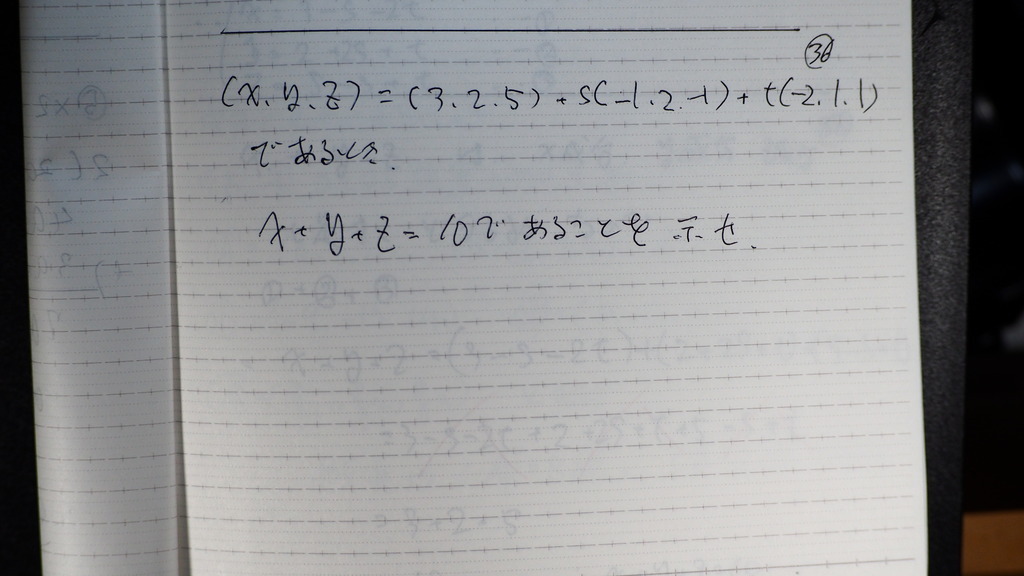 ㊱
(x, y, z) = (3. 2. 5) + s(-1. 2. -1) + t(-2. 1. 1)
であるとき.
x + y + z = 10であることを示せ.